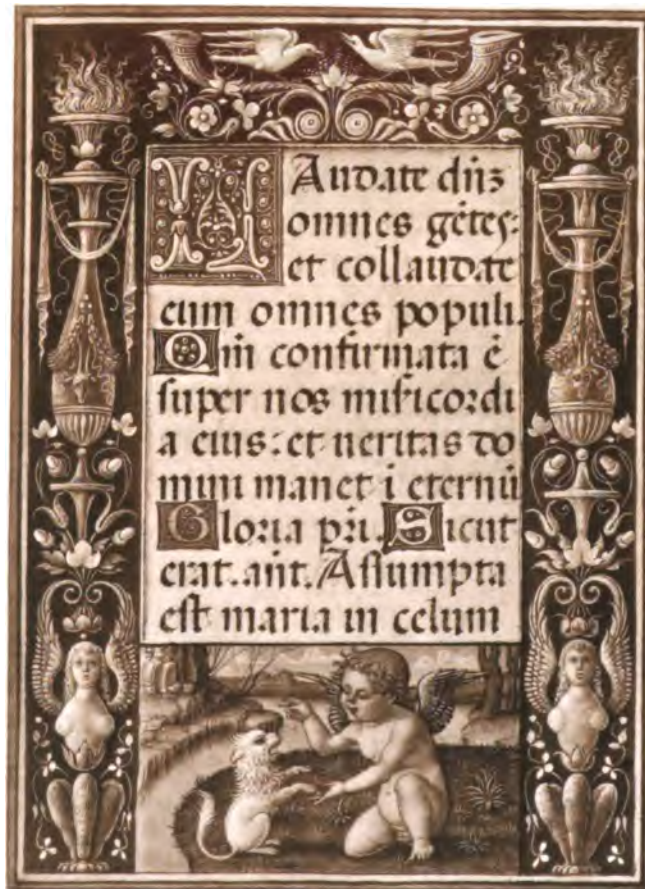 LAudate dnʒ
omnes gētes:
et collaudate
eum omnes populi.
Qm̄ confirmata ē
super nos mis̄icordi
a eius: et ueritas do
mini manet ī eternū
Gloria pr̄i. Sicut
erat. ant̄. Assumpta
est maria in celum